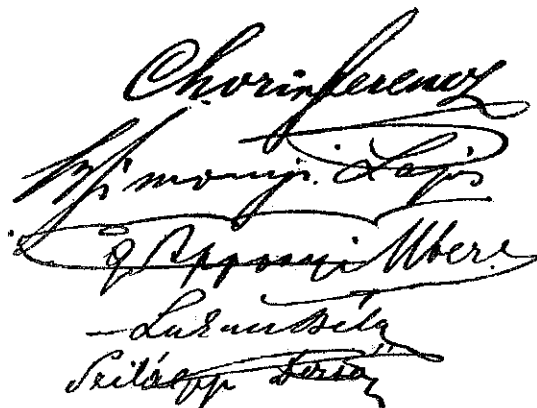 Chorin Ferencz
Simonyi Lajos
g Apponyi Albert
Lukács Béla
Szilágyi Dezső